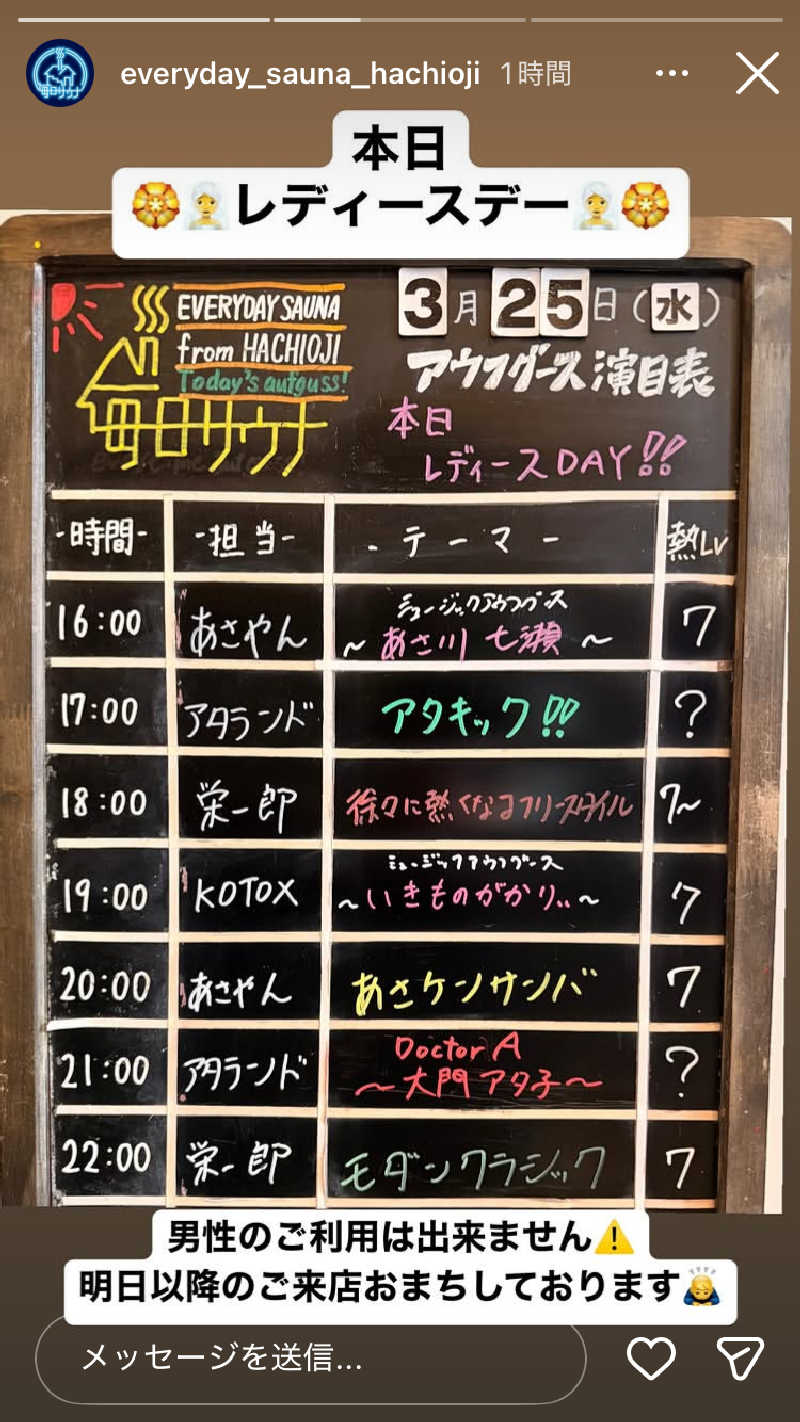 everyday_sauna_hachioji 1時間
本日
レディースデー
EVERYDAY SAUNA
from HACHIOJI
Today's aufguss!
毎日サウナ
3月25日(水)
アウフグース演目表
本日
レディースDAY!!
-時間- -担当- -テーマ- 熱Lv
16:00 あさやん ミュージックアウフグース ~あさ川七瀬~ 7
17:00 アタランド アタキック!! ?
18:00 栄一郎 徐々に熱くなるフリースタイル 7~
19:00 KOTOX ミュージックアウフグース ~いきものがかり..~ 7
20:00 あさやん あさケンサンバ 7
21:00 アタランド Doctor A ~大門アタ子~ ?
22:00 栄一郎 モダンクラシック 7
男性のご利用は出来ません⚠️
明日以降のご来店おまちしております🙇
メッセージを送信...